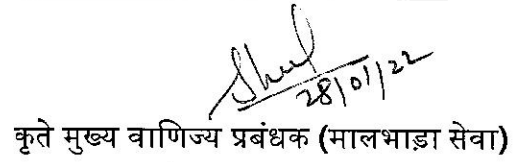 28/01/22
कृते मुख्य वाणिज्य प्रबंधक (मालभाड़ा सेवा)